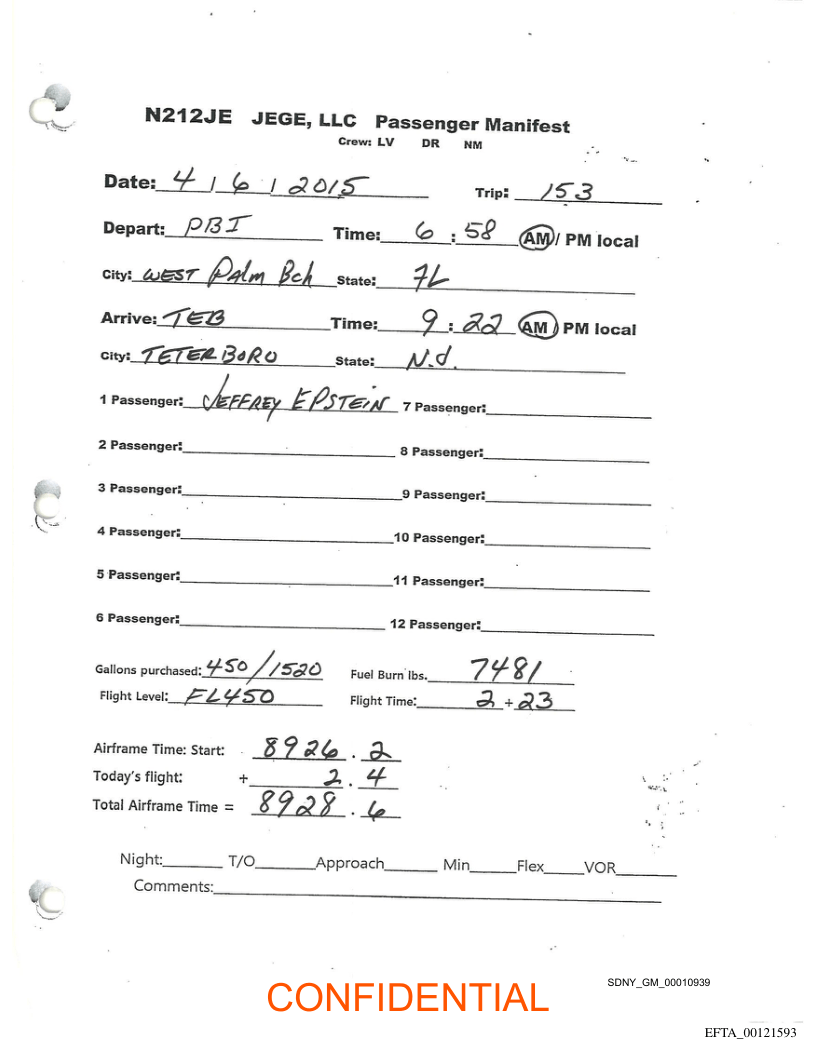 N212JE JEGE, LLC Passenger Manifest
Crew: LV DR NM
Date: 4 / 6 / 2015 Trip: 153
Depart: PBI Time: 6 : 58 AM / PM local
City: WEST Palm Bch State: FL
Arrive: TEB Time: 9 : 22 AM PM local
City: TETERBORO State: N.J.
1 Passenger: JEFFREY EPSTEIN 7 Passenger:
2 Passenger: 8 Passenger:
3 Passenger: 9 Passenger:
4 Passenger: 10 Passenger:
5 Passenger: 11 Passenger:
6 Passenger: 12 Passenger:
Gallons purchased: 450/1520 Fuel Burn lbs. 7481
Flight Level: FL450 Flight Time: 2 + 23
Airframe Time: Start: 8926 . 2
Today's flight: + 2 . 4
Total Airframe Time = 8928 . 6
Night: T/O Approach Min Flex VOR
Comments:
SDNY_GM_00010939
CONFIDENTIAL
EFTA_00121593